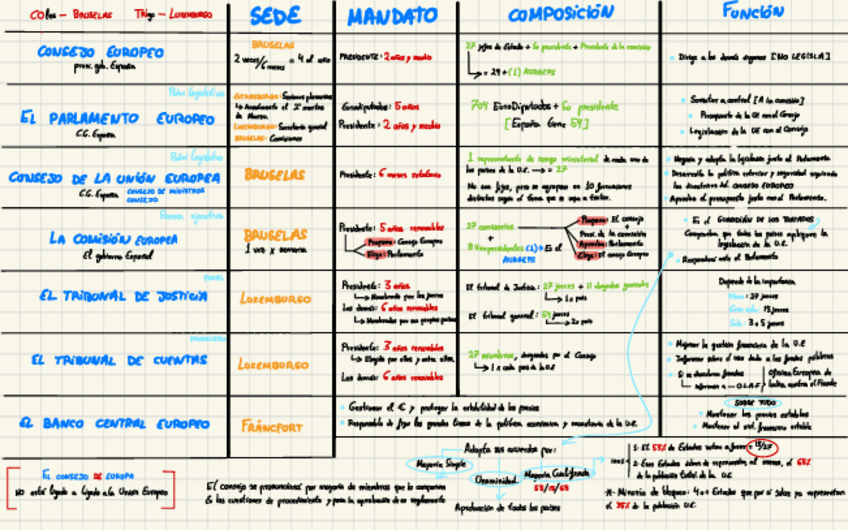 COles - BRUSELAS TRIgo - LUXEMBURGO
SEDE
MANDATO
COMPOSICIÓN
FUNCIÓN
CONSEJO EUROPEO
pres. gob. España
BRUSELAS
2 veces/6 meses = 4 al año
PRESIDENTE: 2 años y medio
27 jefes de Estado + Su presidente + Presidente de la comisión
= 29 + (1) AUREPS
Dirige a los demás órganos [NO LEGISLA]
Poder legislativo
EL PARLAMENTO EUROPEO
C.G. España
Sesiones plenarias
LUXEMBURGO: Secretaría general
BRUSELAS: Comisiones
Eurodiputados: 5 años
Presidente: 2 años y medio
704 EuroDiputados + Su presidente
[España tiene 59]
Someter a control [A la comisión]
Presupuesto de la UE con el Consejo
Legislación de la UE con el Consejo
Poder legislativo
CONSEJO DE LA UNIÓN EUROPEA
C.G. España CONSEJO DE MINISTROS
CONSEJO
BRUSELAS
Presidente: 6 meses rotatorio
1 representante de rango ministerial de cada uno de
los países de la U.E. = 27
No son fijos, pero se agrupan en 10 formaciones
distintas según el tema que se vaya a tratar.
Negocia y adopta la legislación junto al Parlamento
Desarrolla la política exterior y seguridad siguiendo
las directrices del CONSEJO EUROPEO
Aprueba el presupuesto junto con el Parlamento.
LA COMISIÓN EUROPEA
El gobierno Español
BRUSELAS
1 vez x semana
Presidente: 5 años renovables
Propone: Consejo Europeo
Elige: Parlamento
27 comisarios
+
8 Vicepresidentes (1) Es el
AUREPS
Propone: El consejo
+
Pres. de la comisión
Aprueba: Parlamento
Elige: El consejo Europeo
Es el GUARDIÁN DE LOS TRATADOS
Comprueba que todos los países apliquen la
legislación de la U.E.
Responde ante el Parlamento
EL TRIBUNAL DE JUSTICIA
LUXEMBURGO
Presidente: 3 años
Nombrado por los jueces
Los demás: 6 años renovables
Nombrados por sus propios países
El tribunal de Justicia: 27 jueces + 11 abogados generales
1 x país
El tribunal general: 54 jueces
2 x país
Depende de la importancia
27 jueces
15 jueces
3 o 5 jueces
EL TRIBUNAL DE CUENTAS
LUXEMBURGO
Presidente: 3 años renovables
Elegido por ellos y entre ellos
Los demás: 6 años renovables
27 miembros, designados por el Consejo
1 x cada país de la U.E
Mejorar la gestión financiera de la U.E
Informar sobre el uso dado a los fondos públicos
Si se descubren fraudes
Informan a - O.L.A.F
Oficina Europea de
lucha contra el Fraude
EL BANCO CENTRAL EUROPEO
FRÁNCFORT
Gestionar el € y proteger la estabilidad de los precios
Responsable de fijar las grandes líneas de la política económica y monetaria de la U.E.
SOBRE TODO
Mantener los precios estables
Mantener el sist. financiero estable
EL CONSEJO DE EUROPA
NO está ligado a ligado a la Unión Europea
Adopta sus acuerdos por:
Mayoría Simple
Unanimidad
Mayoría Cualificada
Aprobación de todos los países
El consejo se pronunciará por mayoría de miembros que lo componen
en las cuestiones de procedimiento y para la aprobación de su reglamento
1. El 55% de Estados voten a favor = 15/27
2. Esos Estados deben de representar, al menos, el 65%
de la población total de la U.E.
* Minoría de bloqueo: 4 o + Estados que por si solos ya representan
el 35% de la población U.E.